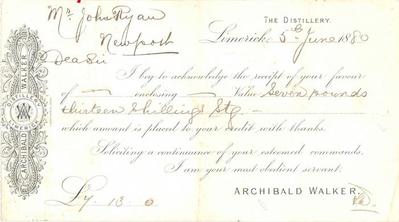 Mr. John Ryan
Newport
THE DISTILLERY.
Limerick 5th June 1880
Dear Sir
I beg to acknowledge the receipt of your favour
of — enclosing — Value Seven pounds
thirteen Shillings Stg. —
which amount is placed to your credit with thanks.
Soliciting a continuance of your esteemed commands.
I am your most obedient servant,
ARCHIBALD WALKER.
£7. 13. 0
ARCHIBALD WALKER
LIMERICK